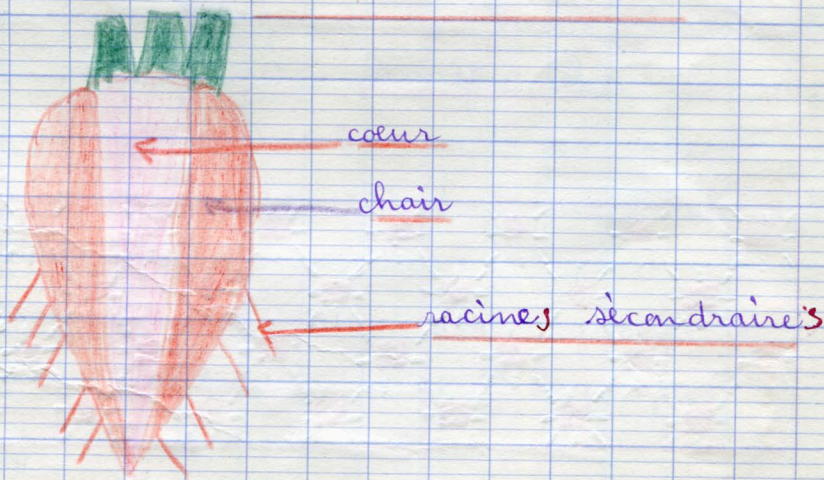 cœur
chair
racines sècondraires